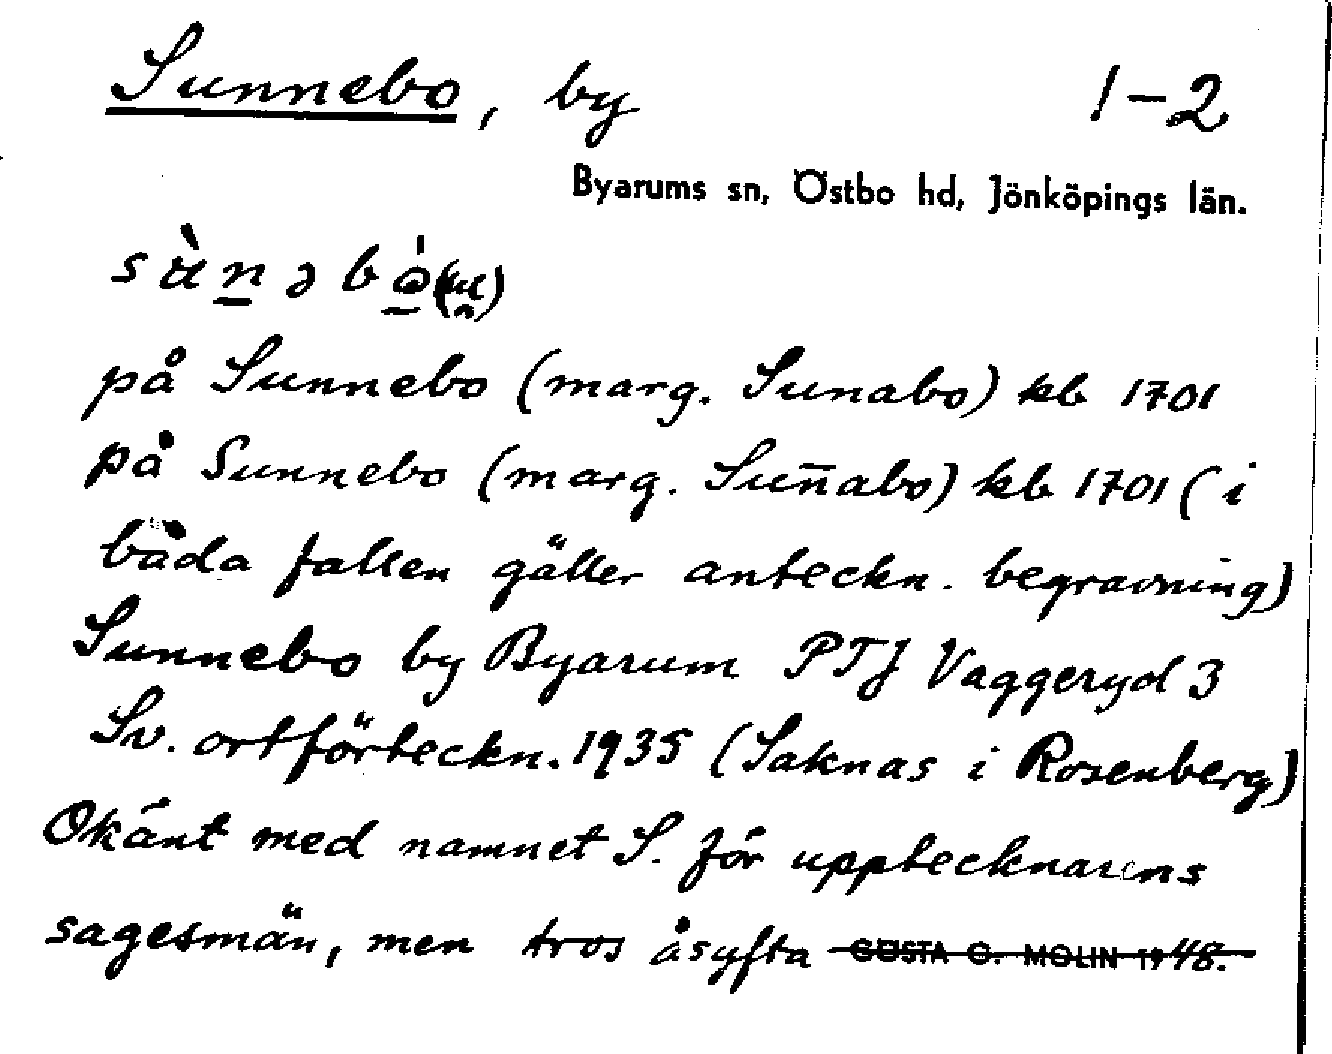 Sunnebo, by 1-2
Byarums sn, Östbo hd, Jönköpings län.
på Sunnebo (marg. Sunabo) kb 1701
på Sunnebo (marg. Sun̄abo) kb 1701 (i
båda fallen gäller anteckn. begravning)
Sunnebo by Byarum PTJ Vaggeryd 3
Sv. ortförteckn. 1935 (Saknas i Rosenberg)
Okänt med namnet S. för upptecknarens
sagesmän, men tros åsyfta GÖSTA O. MOLIN 1948.